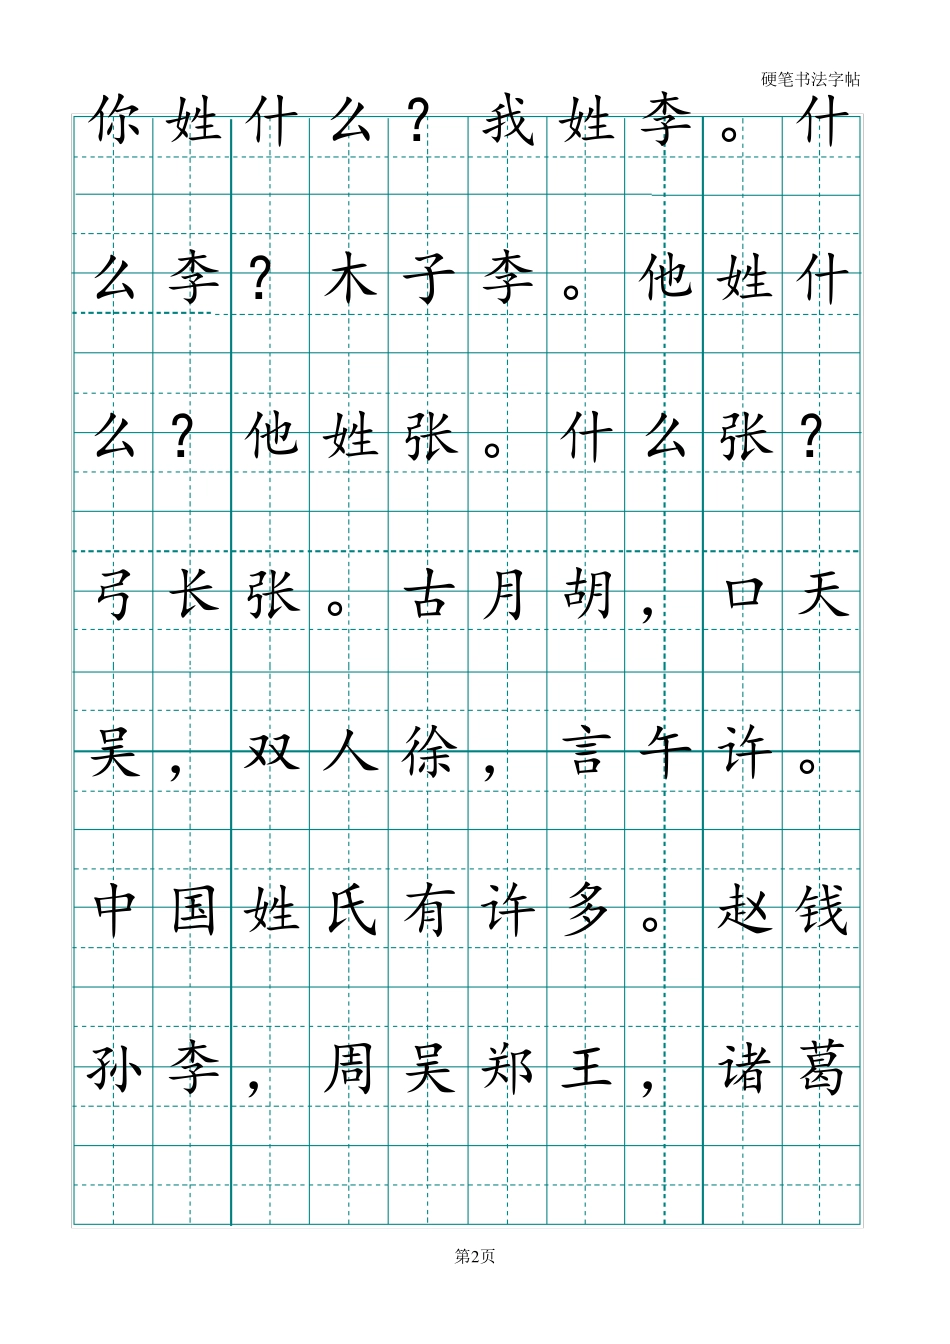 硬笔书法字帖
你姓什么？我姓李。什
么李？木子李。他姓什
么？他姓张。什么张？
弓长张。古月胡，口天
吴，双人徐，言午许。
中国姓氏有许多。赵钱
孙李，周吴郑王，诸葛
第2页